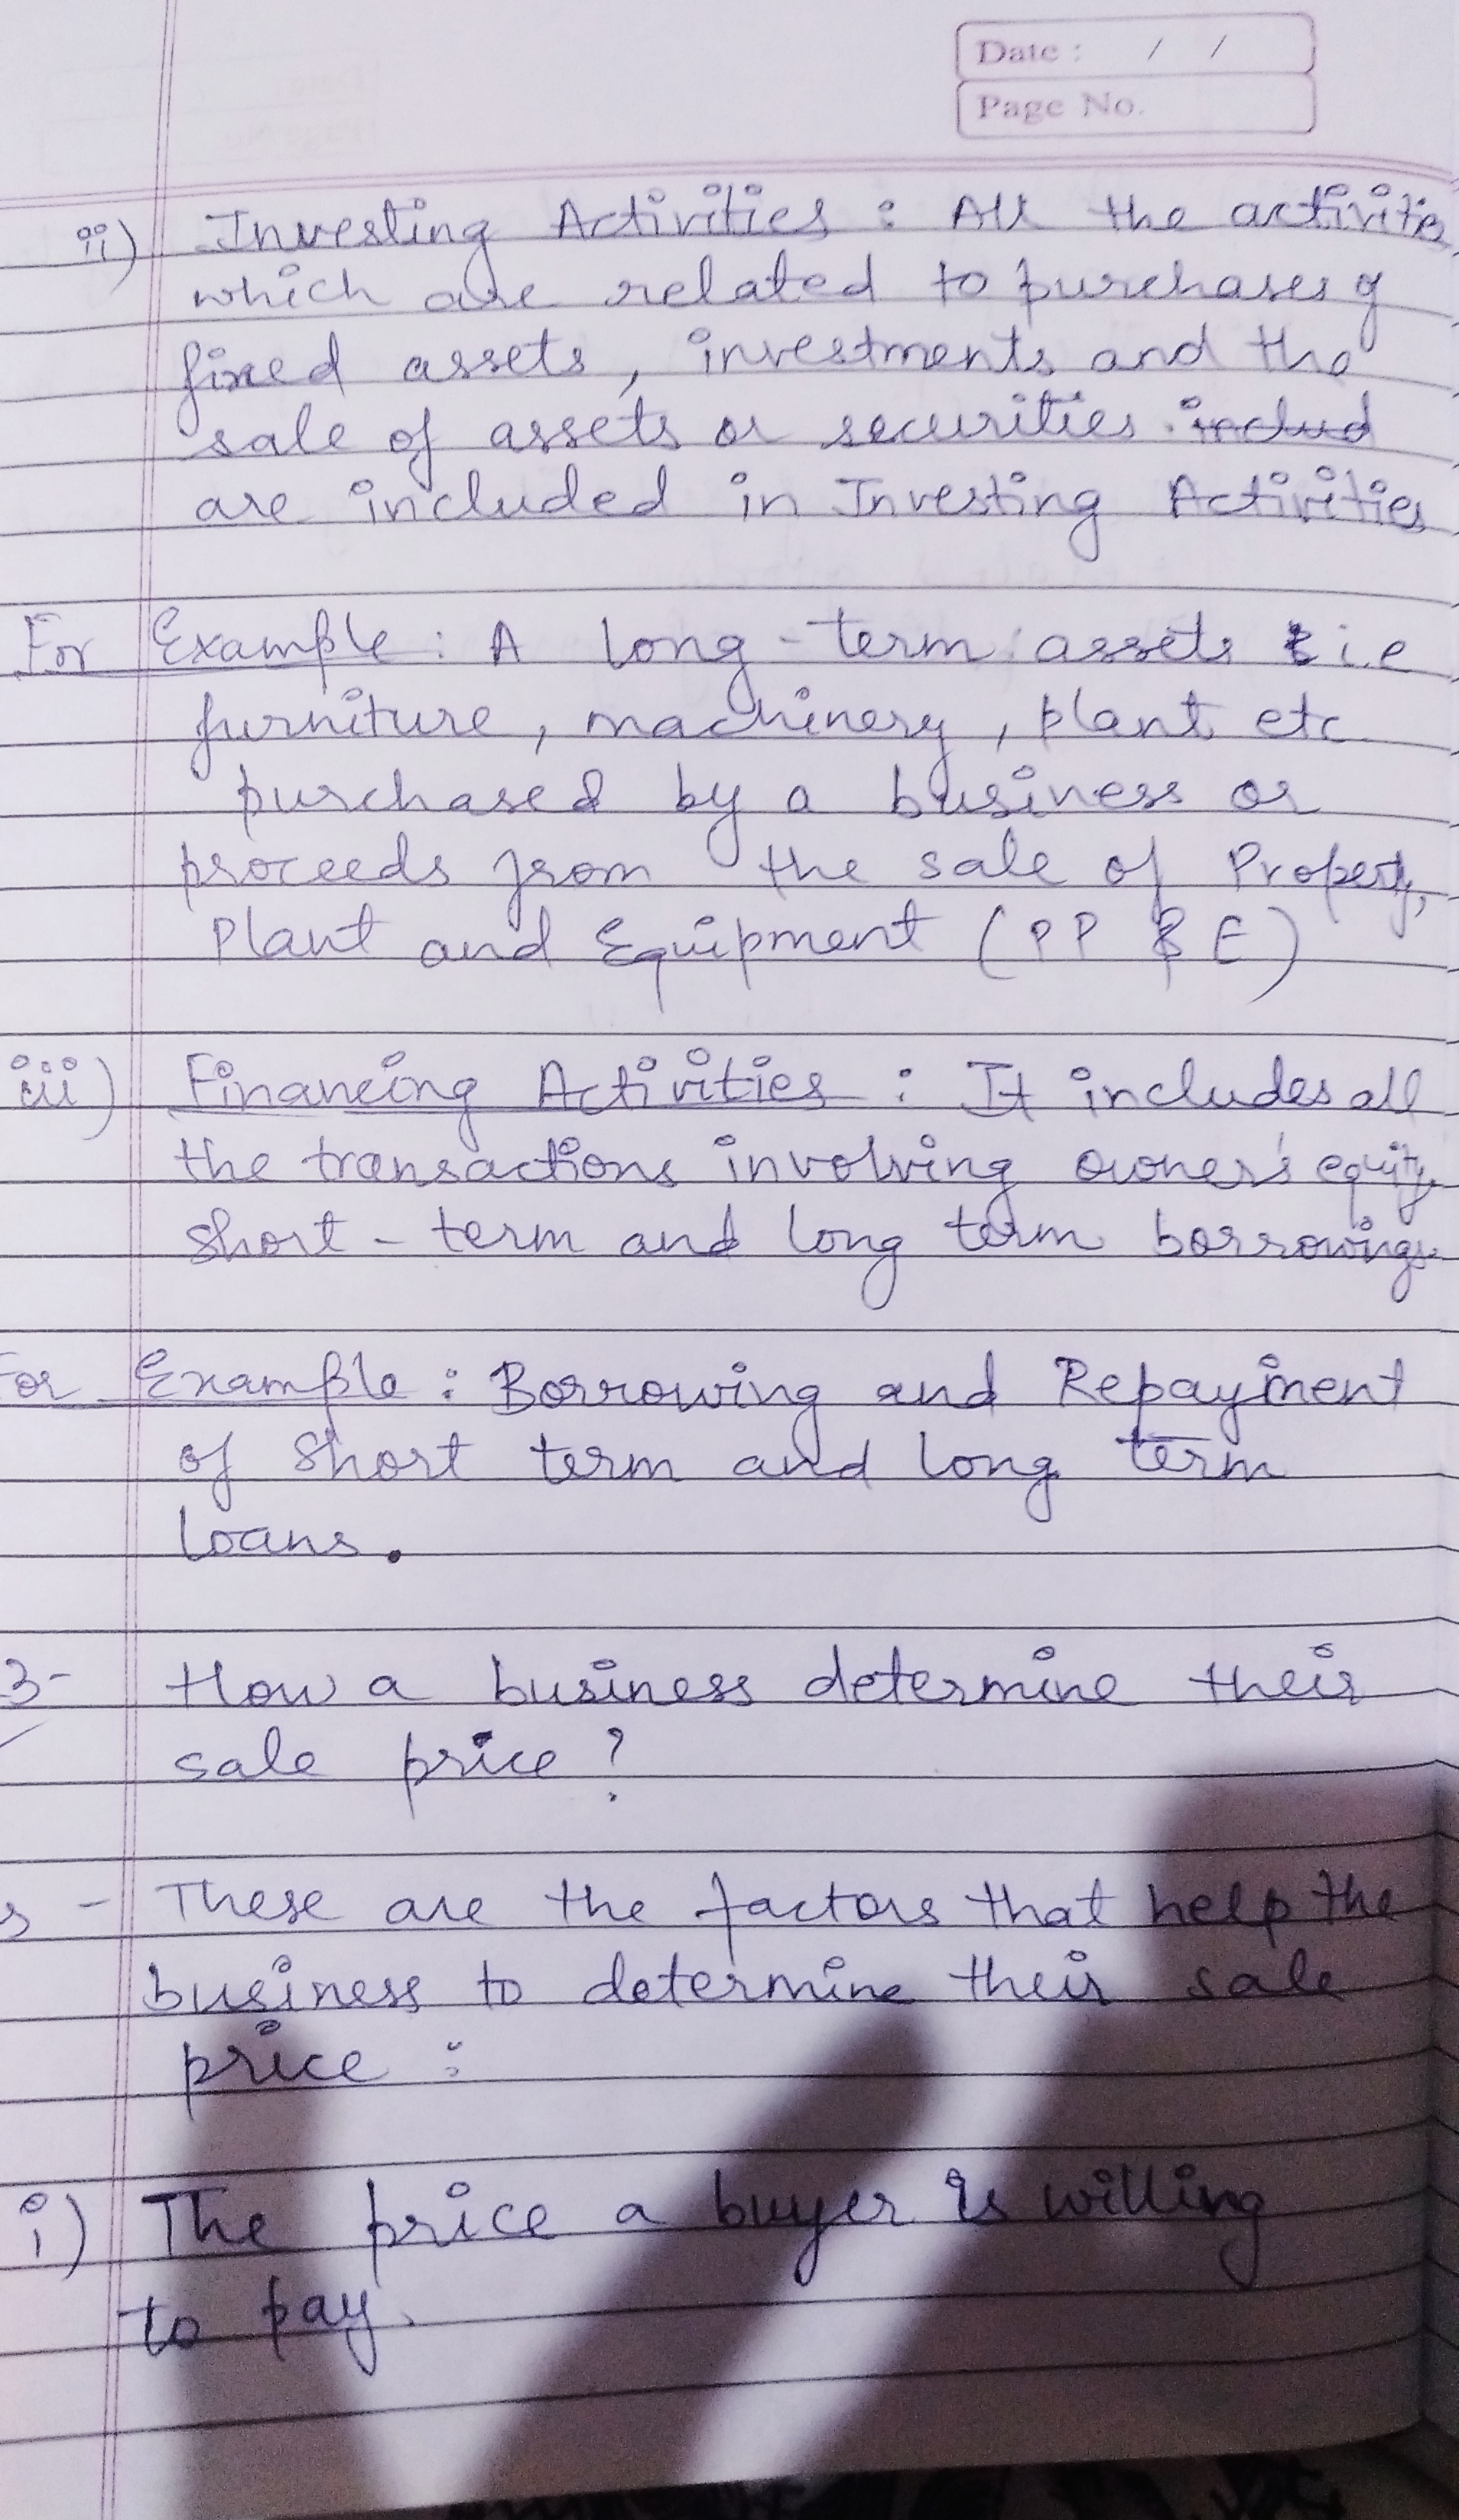 Date : / /
Page No.
ii) Investing Activities : All the activities
which are related to purchases of
fixed assets, investments and the
sale of assets or securities. includ
are included in Investing Activities
For Example : A long-term assets i.e
furniture, machinery, plant etc.
purchased by a business or
proceeds from the sale of Property,
Plant and Equipment (PP & E)
iii) Financing Activities : It includes all
the transactions involving owner's equity
short-term and long term borrowings.
For Example : Borrowing and Repayment
of short term and long term
loans.
3- How a business determine their
sale price?
s - These are the factors that help the
business to determine their sale
price :
i) The price a buyer is willing
to pay.